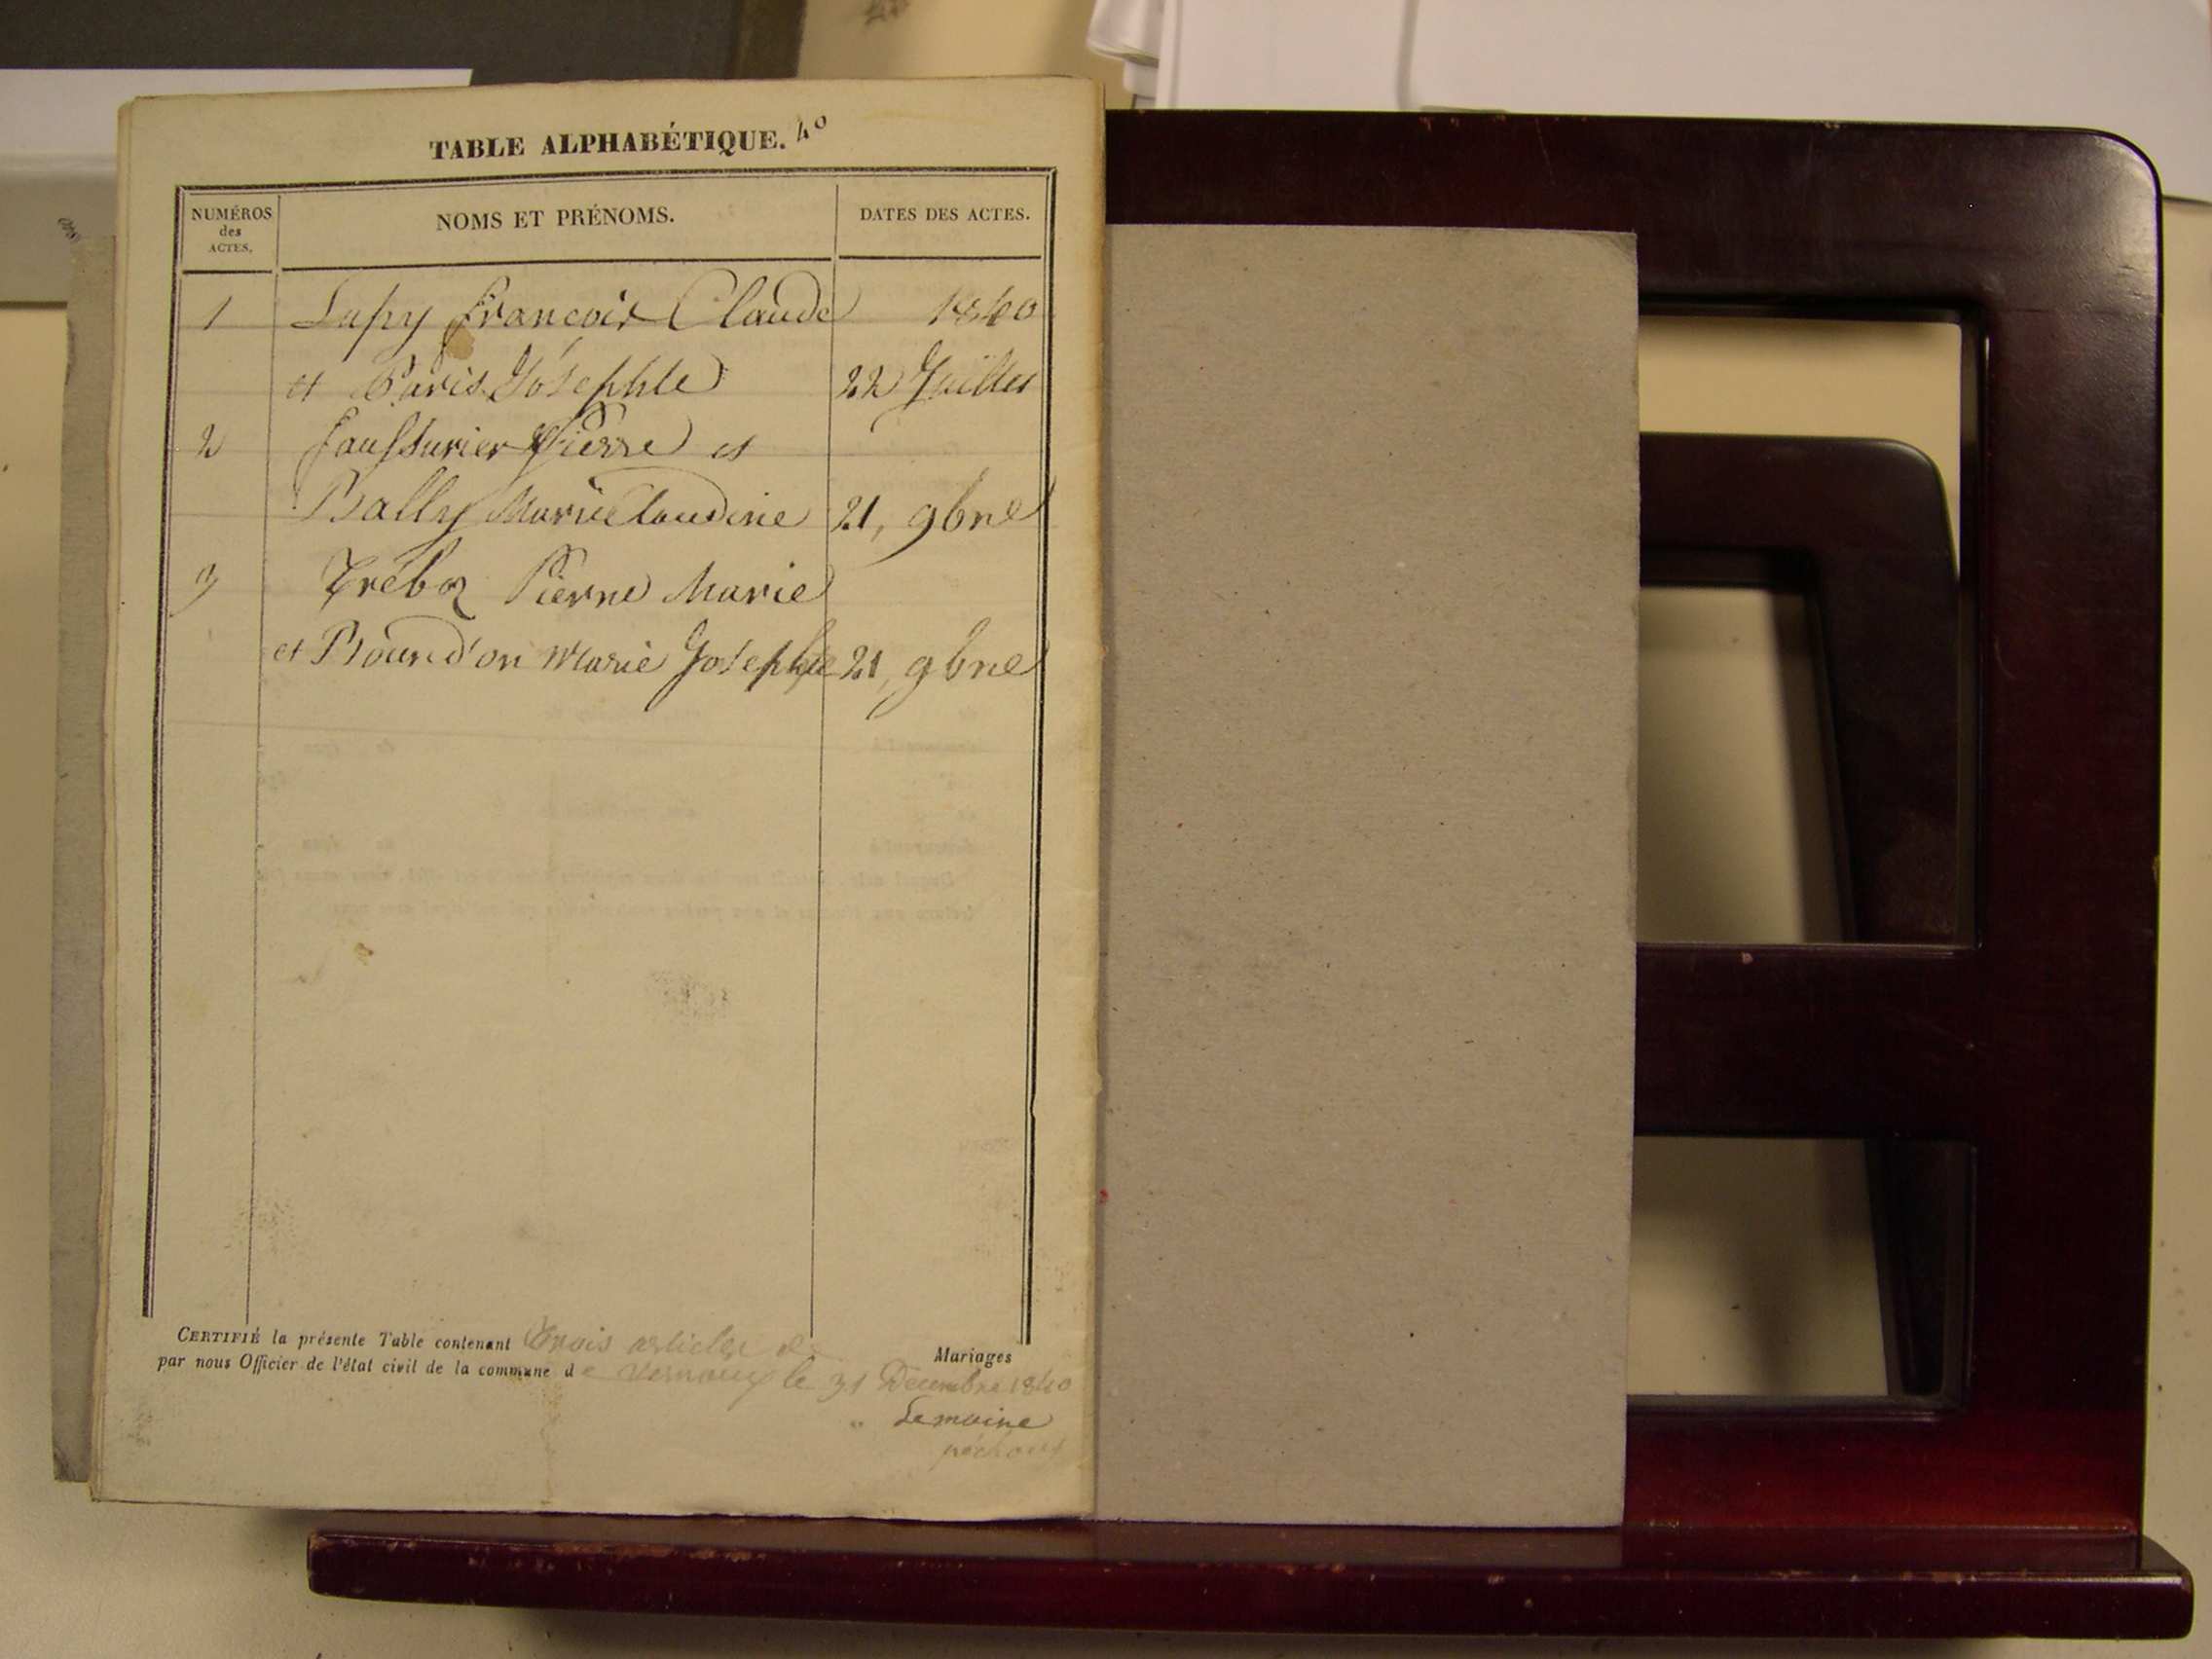 TABLE ALPHABÉTIQUE. 40
NUMÉROS des ACTES.
NOMS ET PRÉNOMS.
DATES DES ACTES.
1 Lapy francois Claude 1840
et Paris Josephte 22 Juillet
2 faussurier Pierre et
Bally Marie Claudine 21, 9bre
3 Tréboz Pierre Marie
et Bourdon Marie Josephte 21, 9bre
CERTIFIÉ la présente Table contenant Trois articles de Mariages
par nous Officier de l'état civil de la commune de Vernoux le 31 Decembre 1840
Le maire